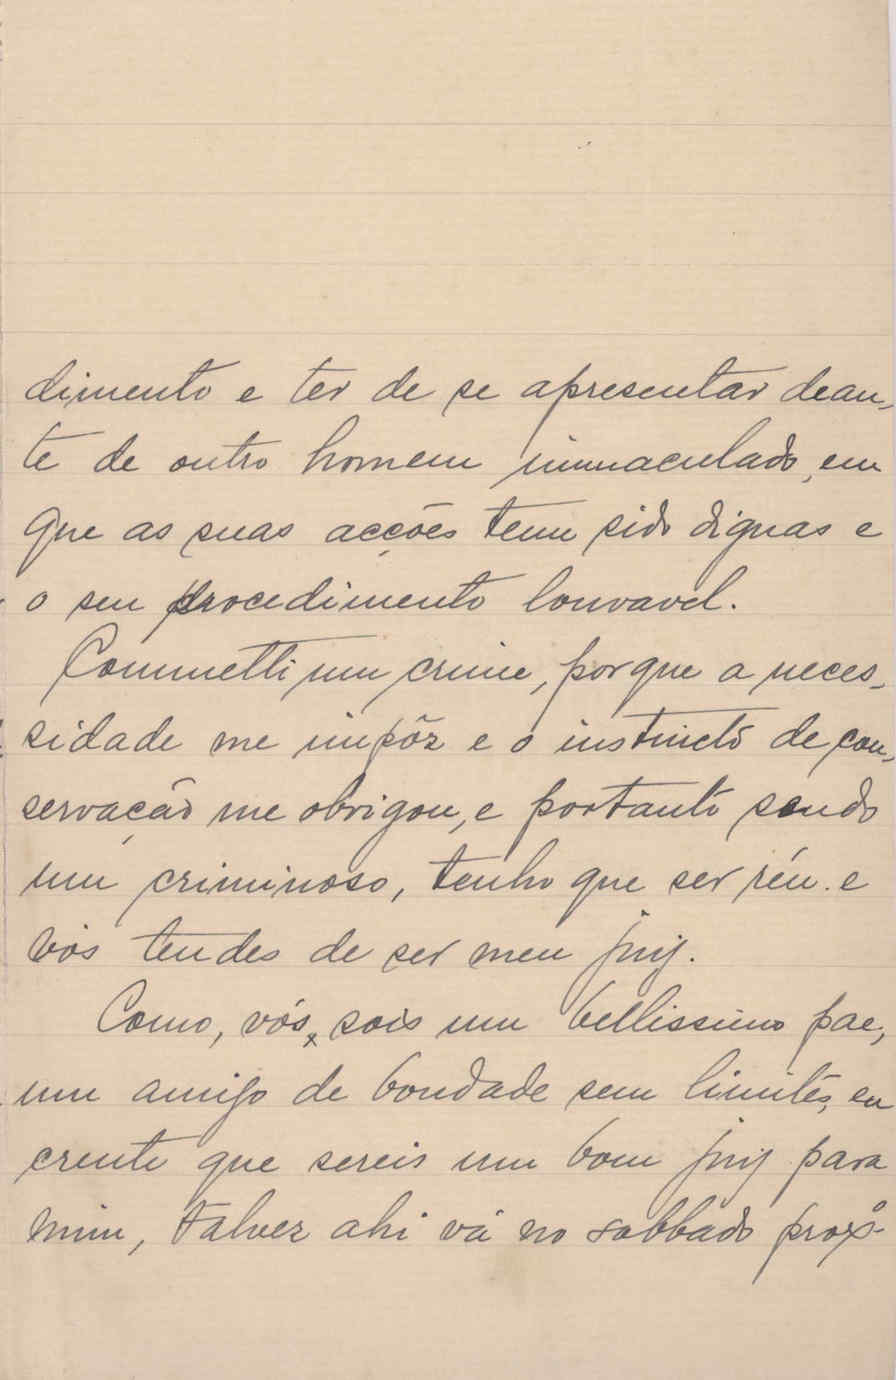 dimento e ter de se apresentar dean-
te de outro homem immaculado, em
que as suas acções tem sido dignas e
o seu procedimento louvavel.
Commetti um crime, porque a neces-
sidade me impôz e o instincto de con-
servação me obrigou, e portanto sendo
um criminoso, tenho que ser réu. e
vós tendes de ser meu juiz.
Como, vós, sois um bellissimo pae,
um amigo de bondade sem limites, eu
crente que sereis um bom juiz para
mim, talvez ahi vá no sabbado proxº